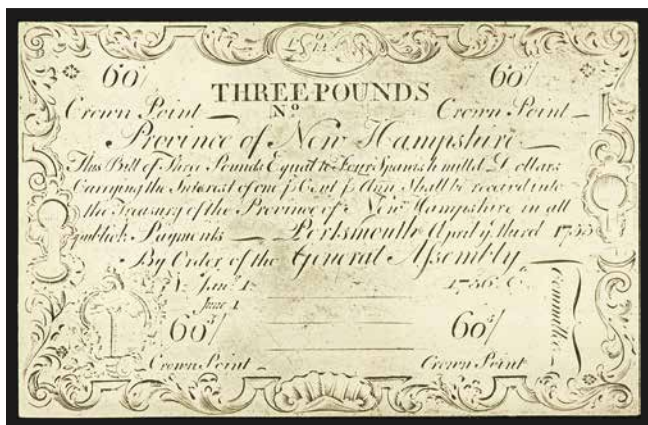 60/ 60/
THREE POUNDS
Crown Point No Crown Point
Province of New Hampshire
This Bill of Three Pounds Equal to Four Spanish milld Dollars
Carrying the Interest of one p Cent p Ann Shall be receivd into
the Treasury of the Province of New Hampshire in all
publick Payments Portsmouth April ye third 1755
By Order of the General Assembly
Janr 1 1756
June 1
60/ 60/
Crown Point Crown Point
Committee